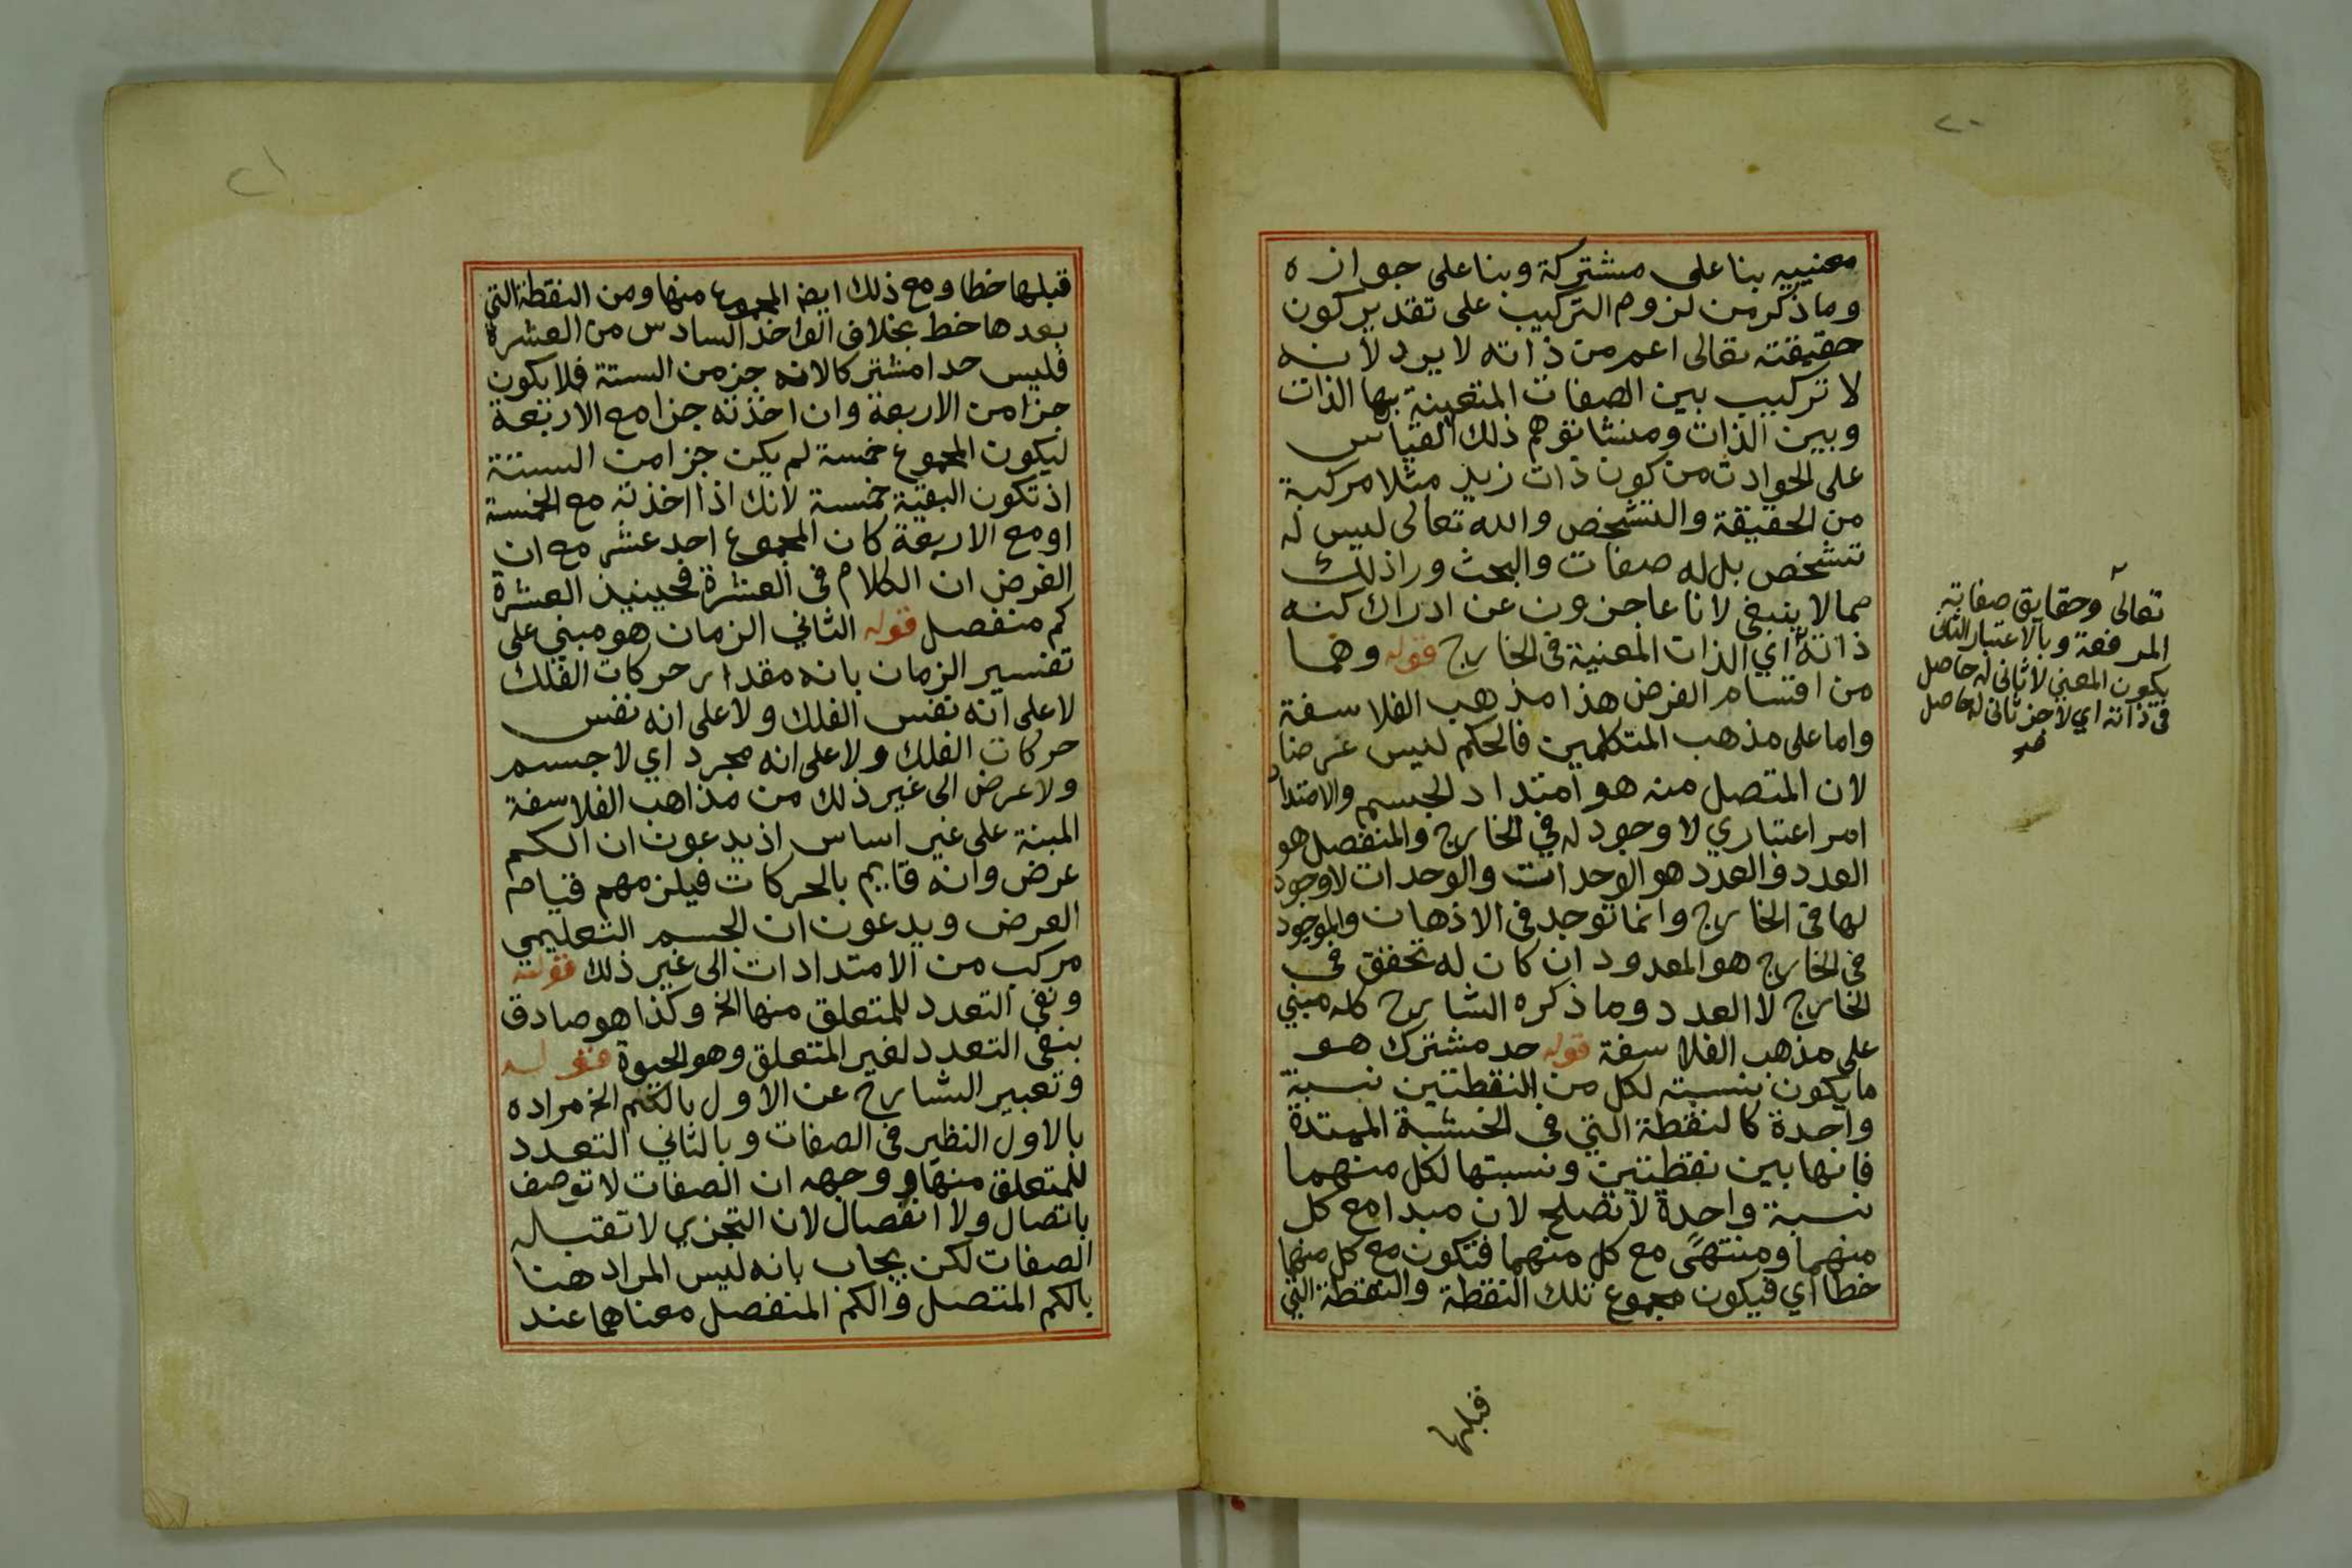 ٢٠
معنييه بنا على مشتركة وبنا على جوازه
وما ذكر من لزوم التركيب على تقدير كون
حقيقته تعالى اعم من ذاته لا يرد لانه
لا تركيب بين الصفات المتعينة بها الذات
وبين الذات ومنشا توهم ذلك القياس
على الحوادث من كون ذات زيد مثلا مركبة
من الحقيقة والتشخص والله تعالى ليس له
تشخص بل له صفات والبحث ورا ذلك
مما لا ينبغي لانا عاجزون عن ادراك كنه
ذاته اي الذات المعنية في الخارج قوله وهما
من اقسام العرض هذا مذهب الفلاسفة
واما على مذهب المتكلمين فالكم ليس عرضا
لان المتصل منه هو امتداد الجسم والامتداد
امر اعتباري لا وجود له في الخارج والمنفصل هو
العدد والعدد هو الوحدات والوحدات لا وجود
لها في الخارج وانما توجد في الاذهان والموجود
في الخارج هو المعدود ان كان له تحقق في
الخارج لا العدد وما ذكره الشارح كله مبني
على مذهب الفلاسفة قوله حد مشترك هو
ما يكون بنسبته لكل من النقطتين نسبة
واحدة كالنقطة التي في الخشبة الممتدة
فانها بين نقطتين ونسبتها لكل منهما
نسبة واحدة لا تصلح لان مبدا مع كل
منهما ومنتهى مع كل منهما فتكون مع كل منهما
خطا اي فيكون مجموع تلك النقطة والنقطة التي
قبلها
تعالى وحقايق صفاته
المرفعة وبالاعتبار الثاني
يكون المعنى لا ثاني له حاصل
في ذاته اي لا جز ثاني له حاصل
صح
٢١
قبلها خطا ومع ذلك ايضا المجموع منها ومن النقطة التي
بعدها خط بخلاف الواخذ السادس من العشرة
فليس حدا مشتركا لانه جز من الستة فلا يكون
جزا من الاربعة وان اخذته جزا مع الاربعة
ليكون المجموع خمسة لم يكن جزا من الستة
اذ تكون البقية خمسة لانك اذا اخذته مع الخمسة
او مع الاربعة كان المجموع احد عشر مع ان
الفرض ان الكلام في العشرة فحينيذ العشرة
كم منفصل قوله الثاني الزمان هو مبني على
تفسير الزمان بانه مقدار حركات الفلك
لا على انه نفس الفلك ولا على انه نفس
حركات الفلك ولا على انه مجرد اي لا جسم
ولا عرض الى غير ذلك من مذاهب الفلاسفة
المبنة على غير اساس اذ يدعون ان الكم
عرض وانه قايم بالحركات فيلزمهم قيام
العرض ويدعون ان الجسم التعليمي
مركب من الامتدادات الى غير ذلك قوله
ونفي التعدد للمتعلق منها الخ وكذا هو صادق
بنفي التعدد لغير المتعلق وهو الحيوة قوله
وتعبير الشارح عن الاول بالكم الخ مراده
بالاول النظير في الصفات وبالثاني التعدد
للمتعلق منها ووجهه ان الصفات لا توصف
باتصال ولا انفصال لان التجزي لا تقبله
الصفات لكن يجاب بانه ليس المراد هنا
بالكم المتصل والكم المنفصل معناهما عند